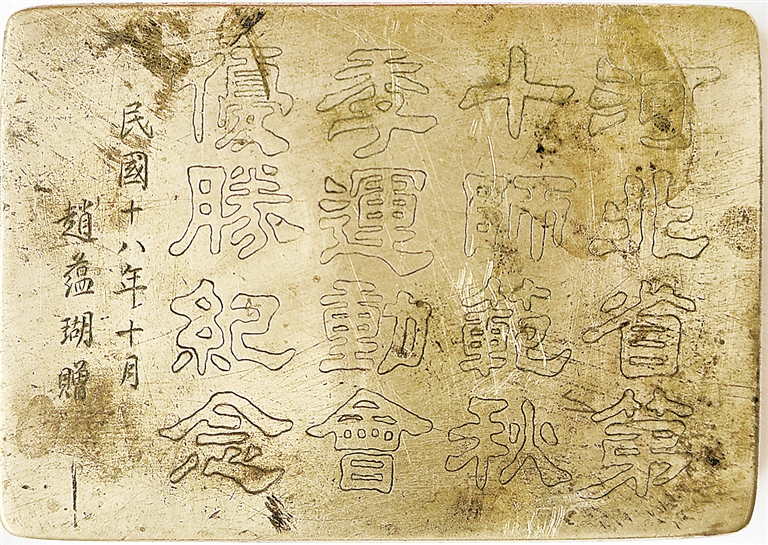 河北省第
十師範秋
季運動會
優勝紀念
民國十八年十月
趙蕴瑚贈